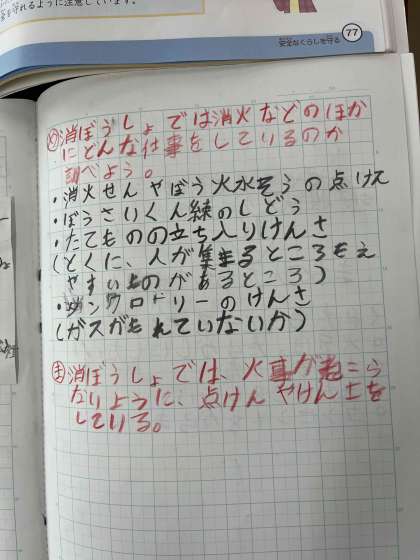 を守れるように注意しています。
安全なくらしを守る 77
め 消ぼうしょでは消火などのほか
にどんな仕事をしているのか
調べよう。
・消火せんやぼう火水そうの点けん
・ぼうさいくん練のしどう
・たてものの立ち入りけんさ
(とくに、人が集まるところもえ
やすいものがあるところ)
・タンクロトリーのけんさ
(ガスがもれていないか)
ま 消ぼうしょでは、火事がおこら
ないように、点けんやけんさを
している。